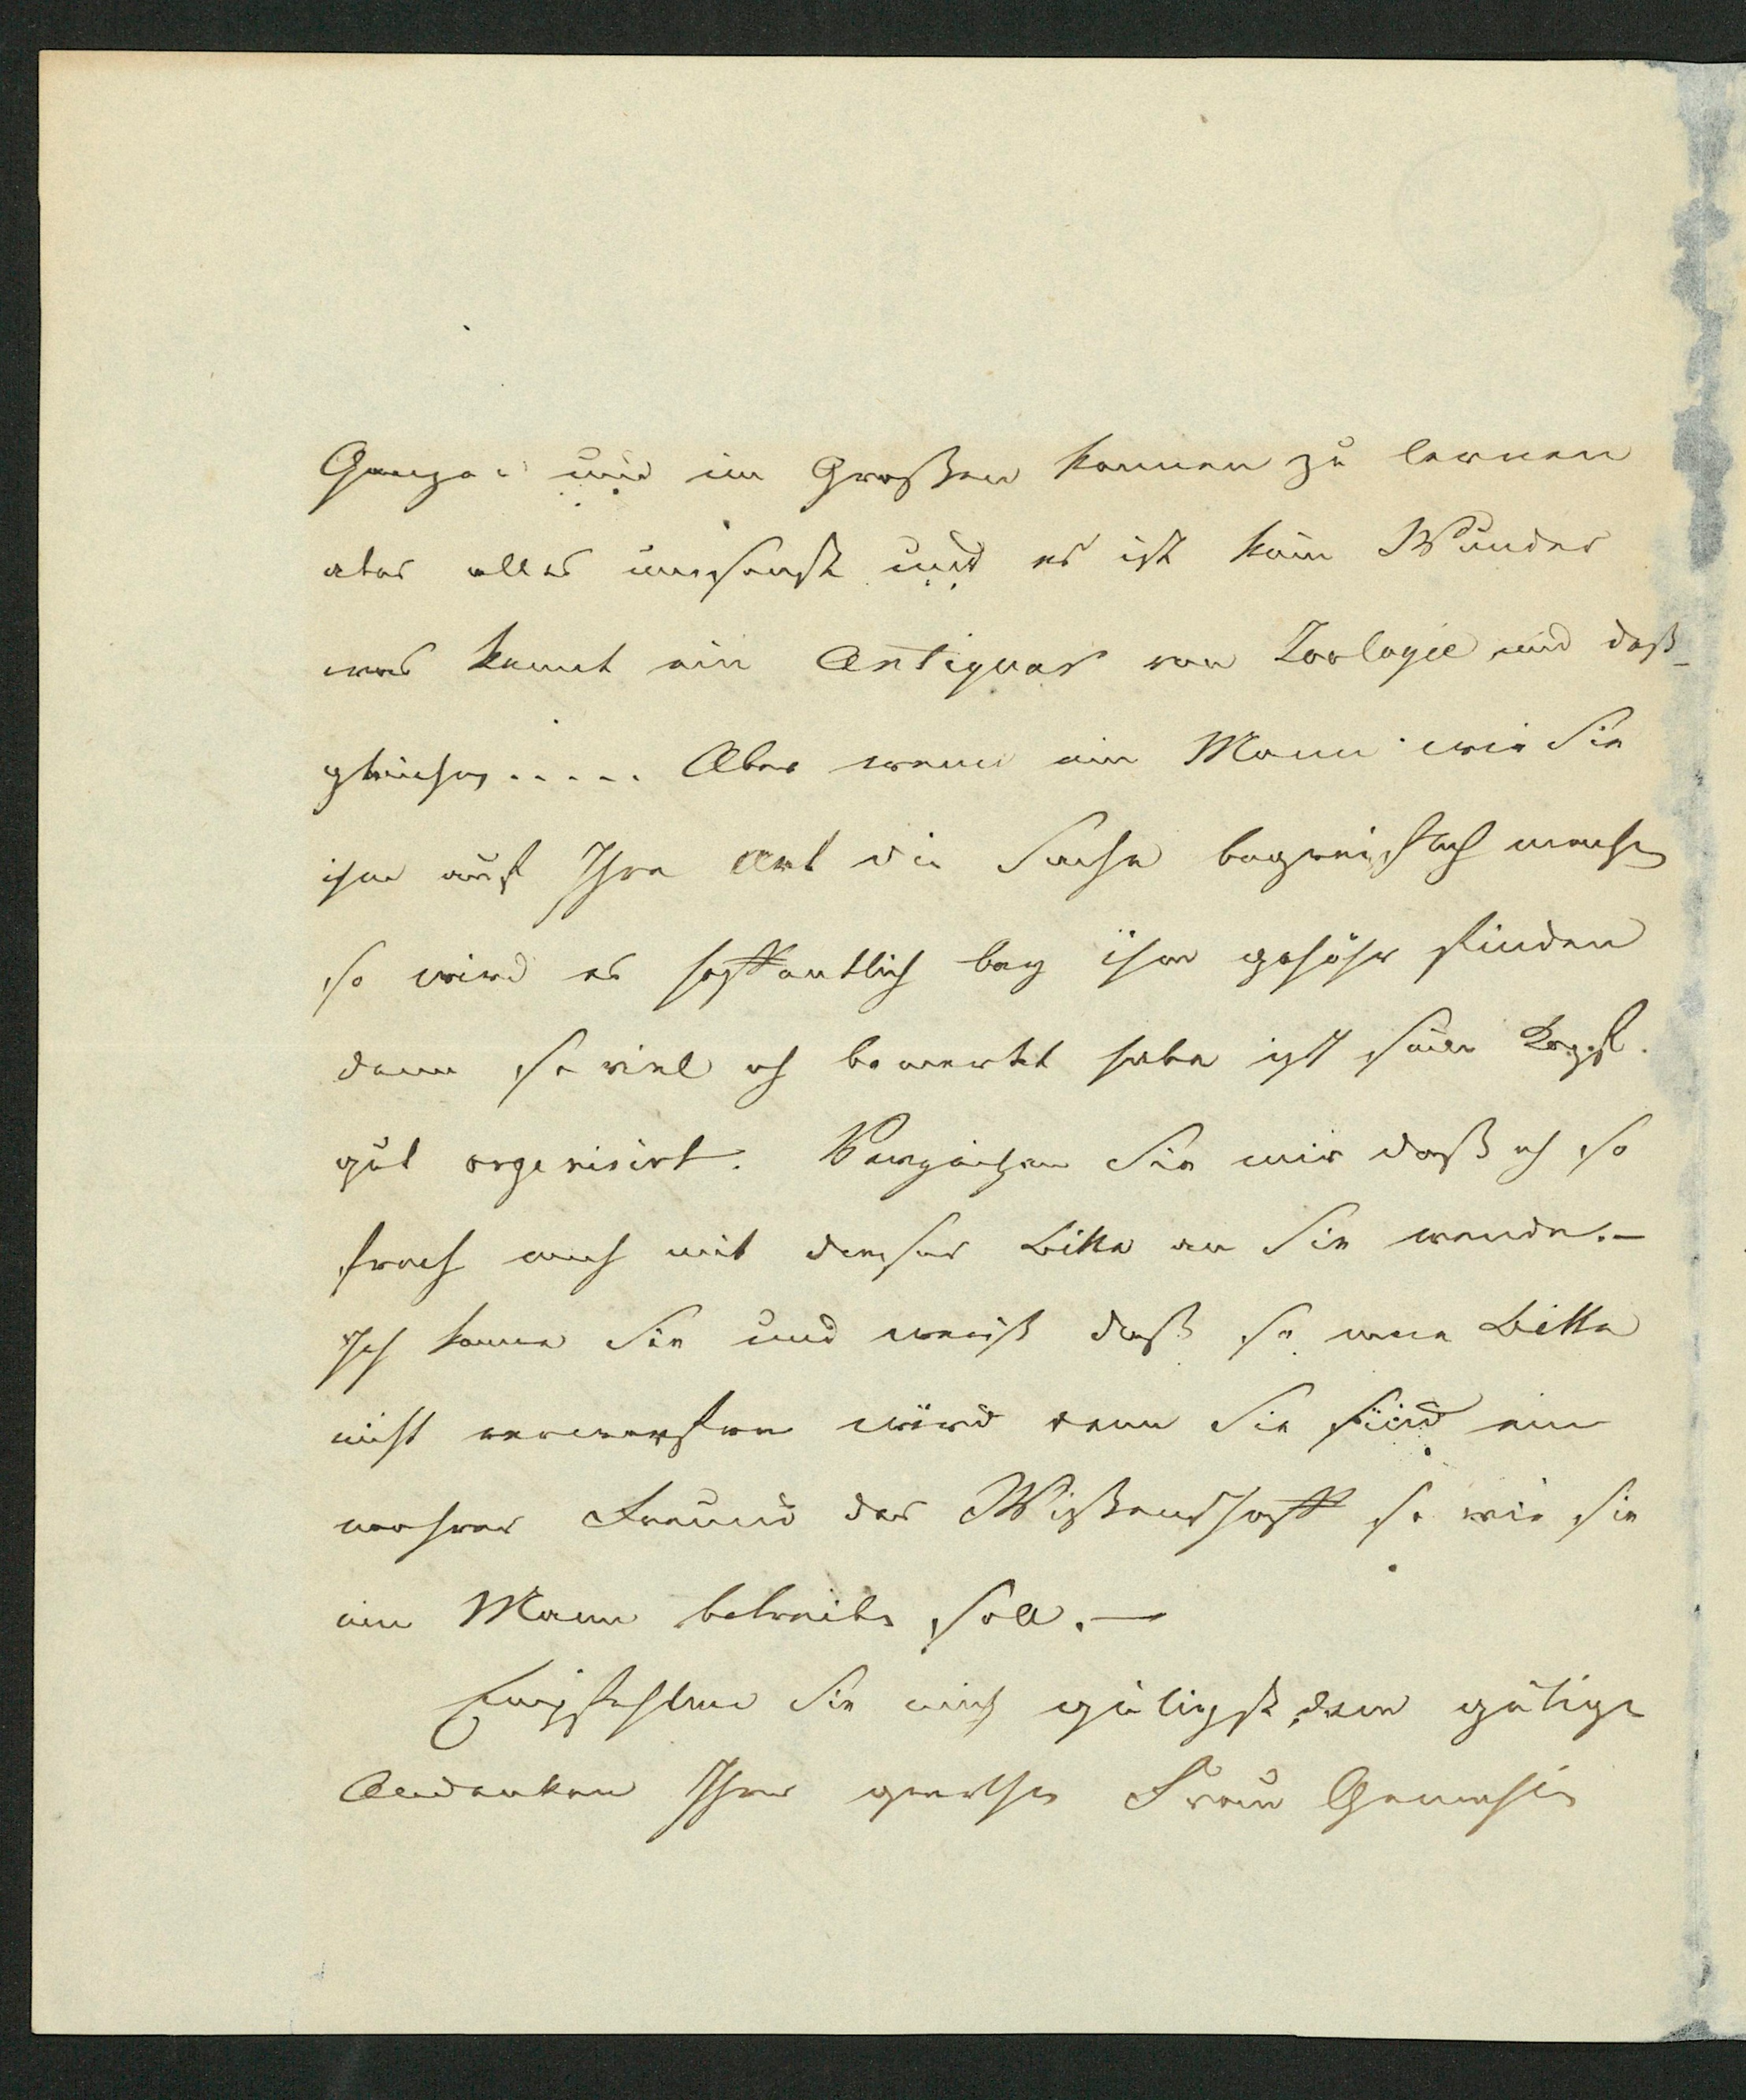 Ganzen und im Großen kennen zu lernen
aber alles umsonst und es ist kein Wunder
was kennt ein Antiquar von Zoologie und deß-
gleichen..... Aber wenn ein Mann wie Sie
ihm auf Ihre Art die Sache begreiflich machen
so wird es hoffentlich bey ihm gehöhr finden
denn so viel ich bemerkt habe ist sein Kopf
gut organisirt. Verzeihen Sie mir daß ich so
frech mich mit dieser Bitte an Sie wende.-
Ich kenne Sie und weiß daß so eine Bitte
nicht verworfen wird denn Sie sind ein
wahrer Freund der Wißenschaft so wie sie
ein Mann betreiben soll.-
Empfehlen Sie mich gütigst dem gütigen
Andenken Ihrer geehrten Frau Gemahlin